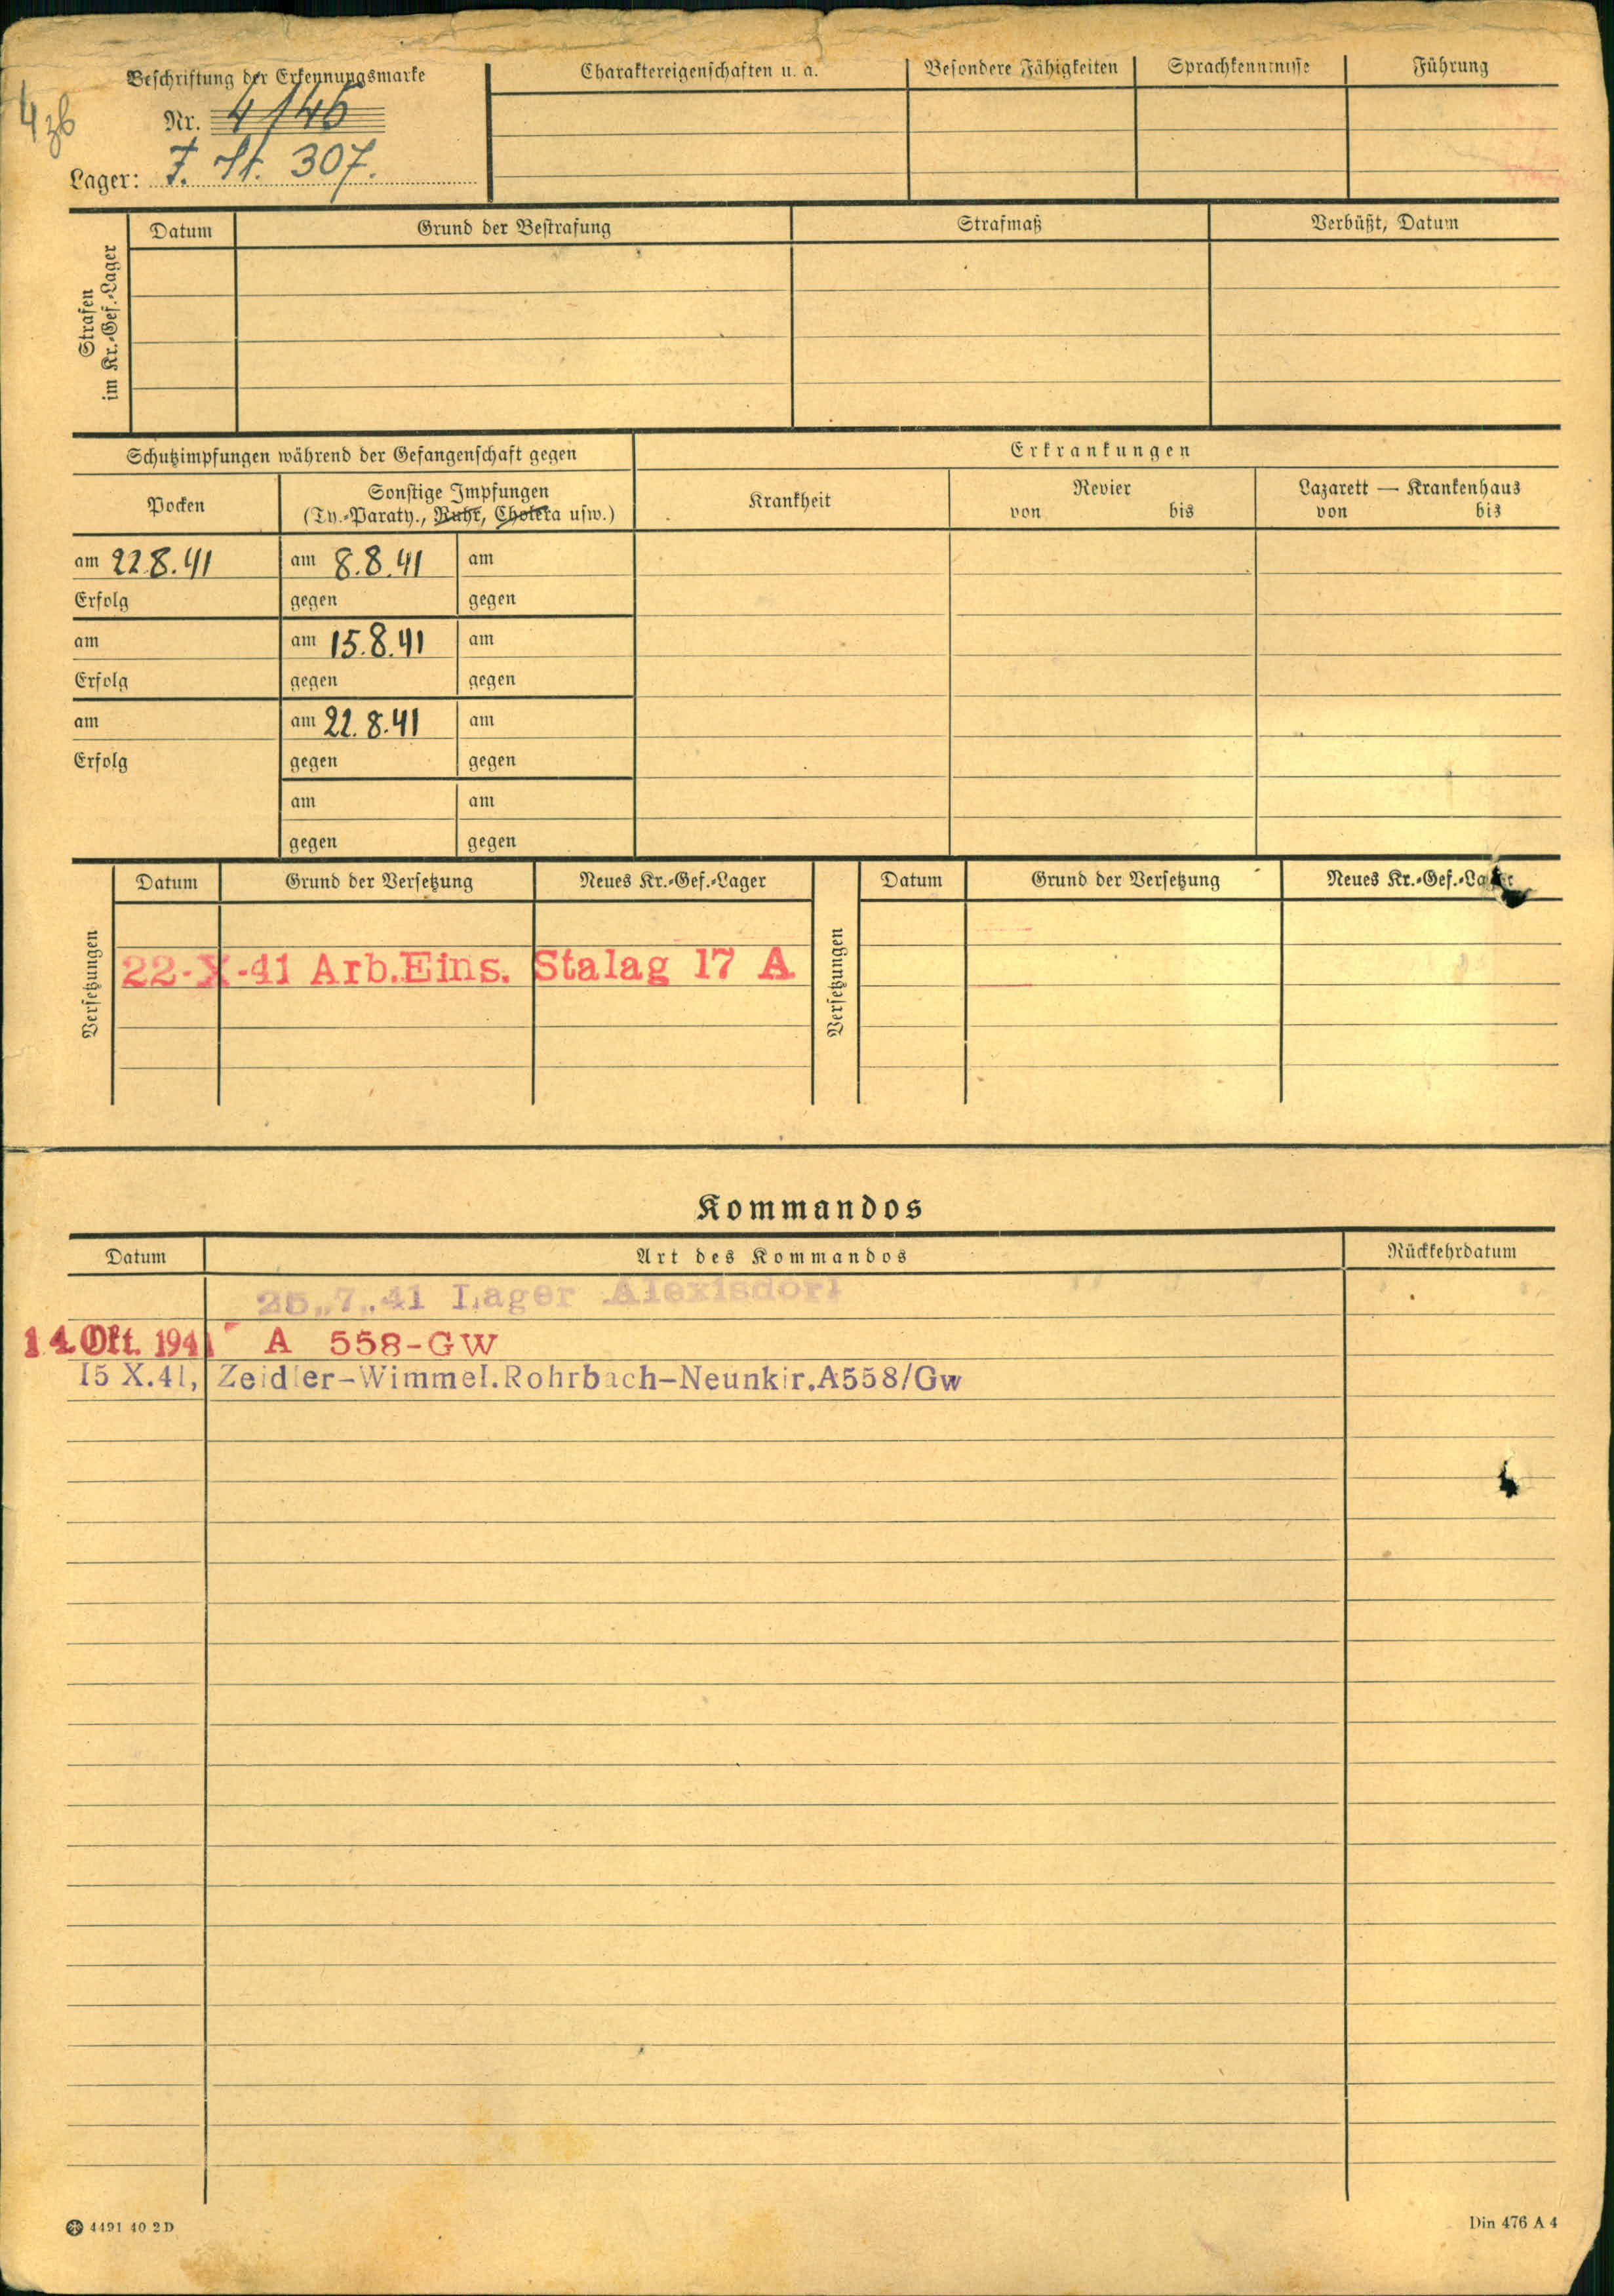 Beschriftung der Erkennungsmarke
Nr. 4146
Lager: F. St. 307.
Charaktereigenschaften u. a.
Besondere Fähigkeiten
Sprachkenntnisse
Führung
Strafen
im Kr.-Gef.-Lager
Datum
Grund der Bestrafung
Strafmaß
Verbüßt, Datum
Schutzimpfungen während der Gefangenschaft gegen
Erkrankungen
Pocken
Sonstige Impfungen
(Ty.-Paraty., Ruhr, Cholera usw.)
Krankheit
Revier
von bis
Lazarett — Krankenhaus
von bis
am 22.8.41 am 8.8.41 am
Erfolg gegen gegen
am am 15.8.41 am
Erfolg gegen gegen
am am 22.8.41 am
Erfolg gegen gegen
am am
gegen gegen
Versetzungen
Datum Grund der Versetzung Neues Kr.-Gef.-Lager
22-X-41 Arb.Eins. Stalag 17 A
Versetzungen
Datum Grund der Versetzung Neues Kr.-Gef.-Lager
Kommandos
Datum Art des Kommandos Rückkehrdatum
25.,7,.41 Lager Alexisdorf
14. Okt. 1941 A 558-GW
15 X.41, Zeidler-Wimmel.Rohrbach-Neunkir.A558/Gw
4491 40 2D
Din 476 A 4